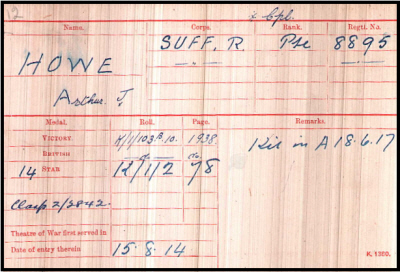 12
& Cpl.
Name. Corps. Rank. Regtl. No.
HOWE SUFF. R. Pte 8895
Arthur J. — " — — " —
Medal. Roll. Page. Remarks.
VICTORY K/1/103 B.10. 1938. Kld in A 18.6.17
BRITISH -do- -do-
14 STAR K/1/2 78
Clasp 2/2842.
Theatre of War first served in
Date of entry therein 15.8.14
K. 1380.